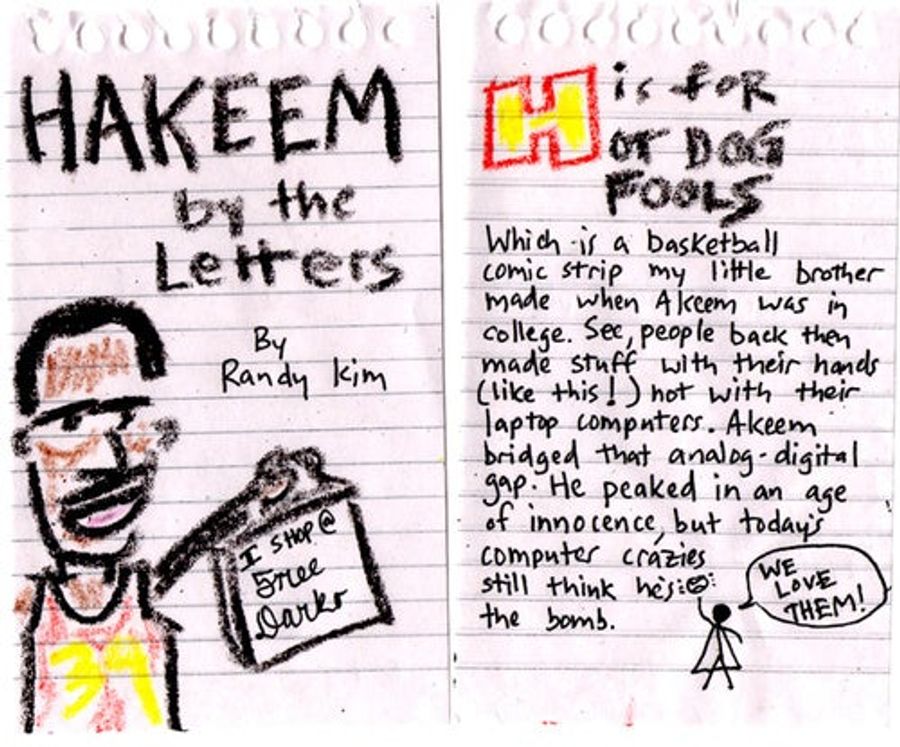 HAKEEM
by the
Letters
By
Randy Kim
I SHOP @
Free
Darko
34
H is foR
OT DOG
FOOLS
Which is a basketball
comic strip my little brother
made when Akeem was in
college. See, people back then
made stuff with their hands
(like this!) not with their
laptop computers. Akeem
bridged that analog-digital
gap. He peaked in an age
of innocence, but today's
computer crazies
still think he's
the bomb.
WE
LOVE
THEM!